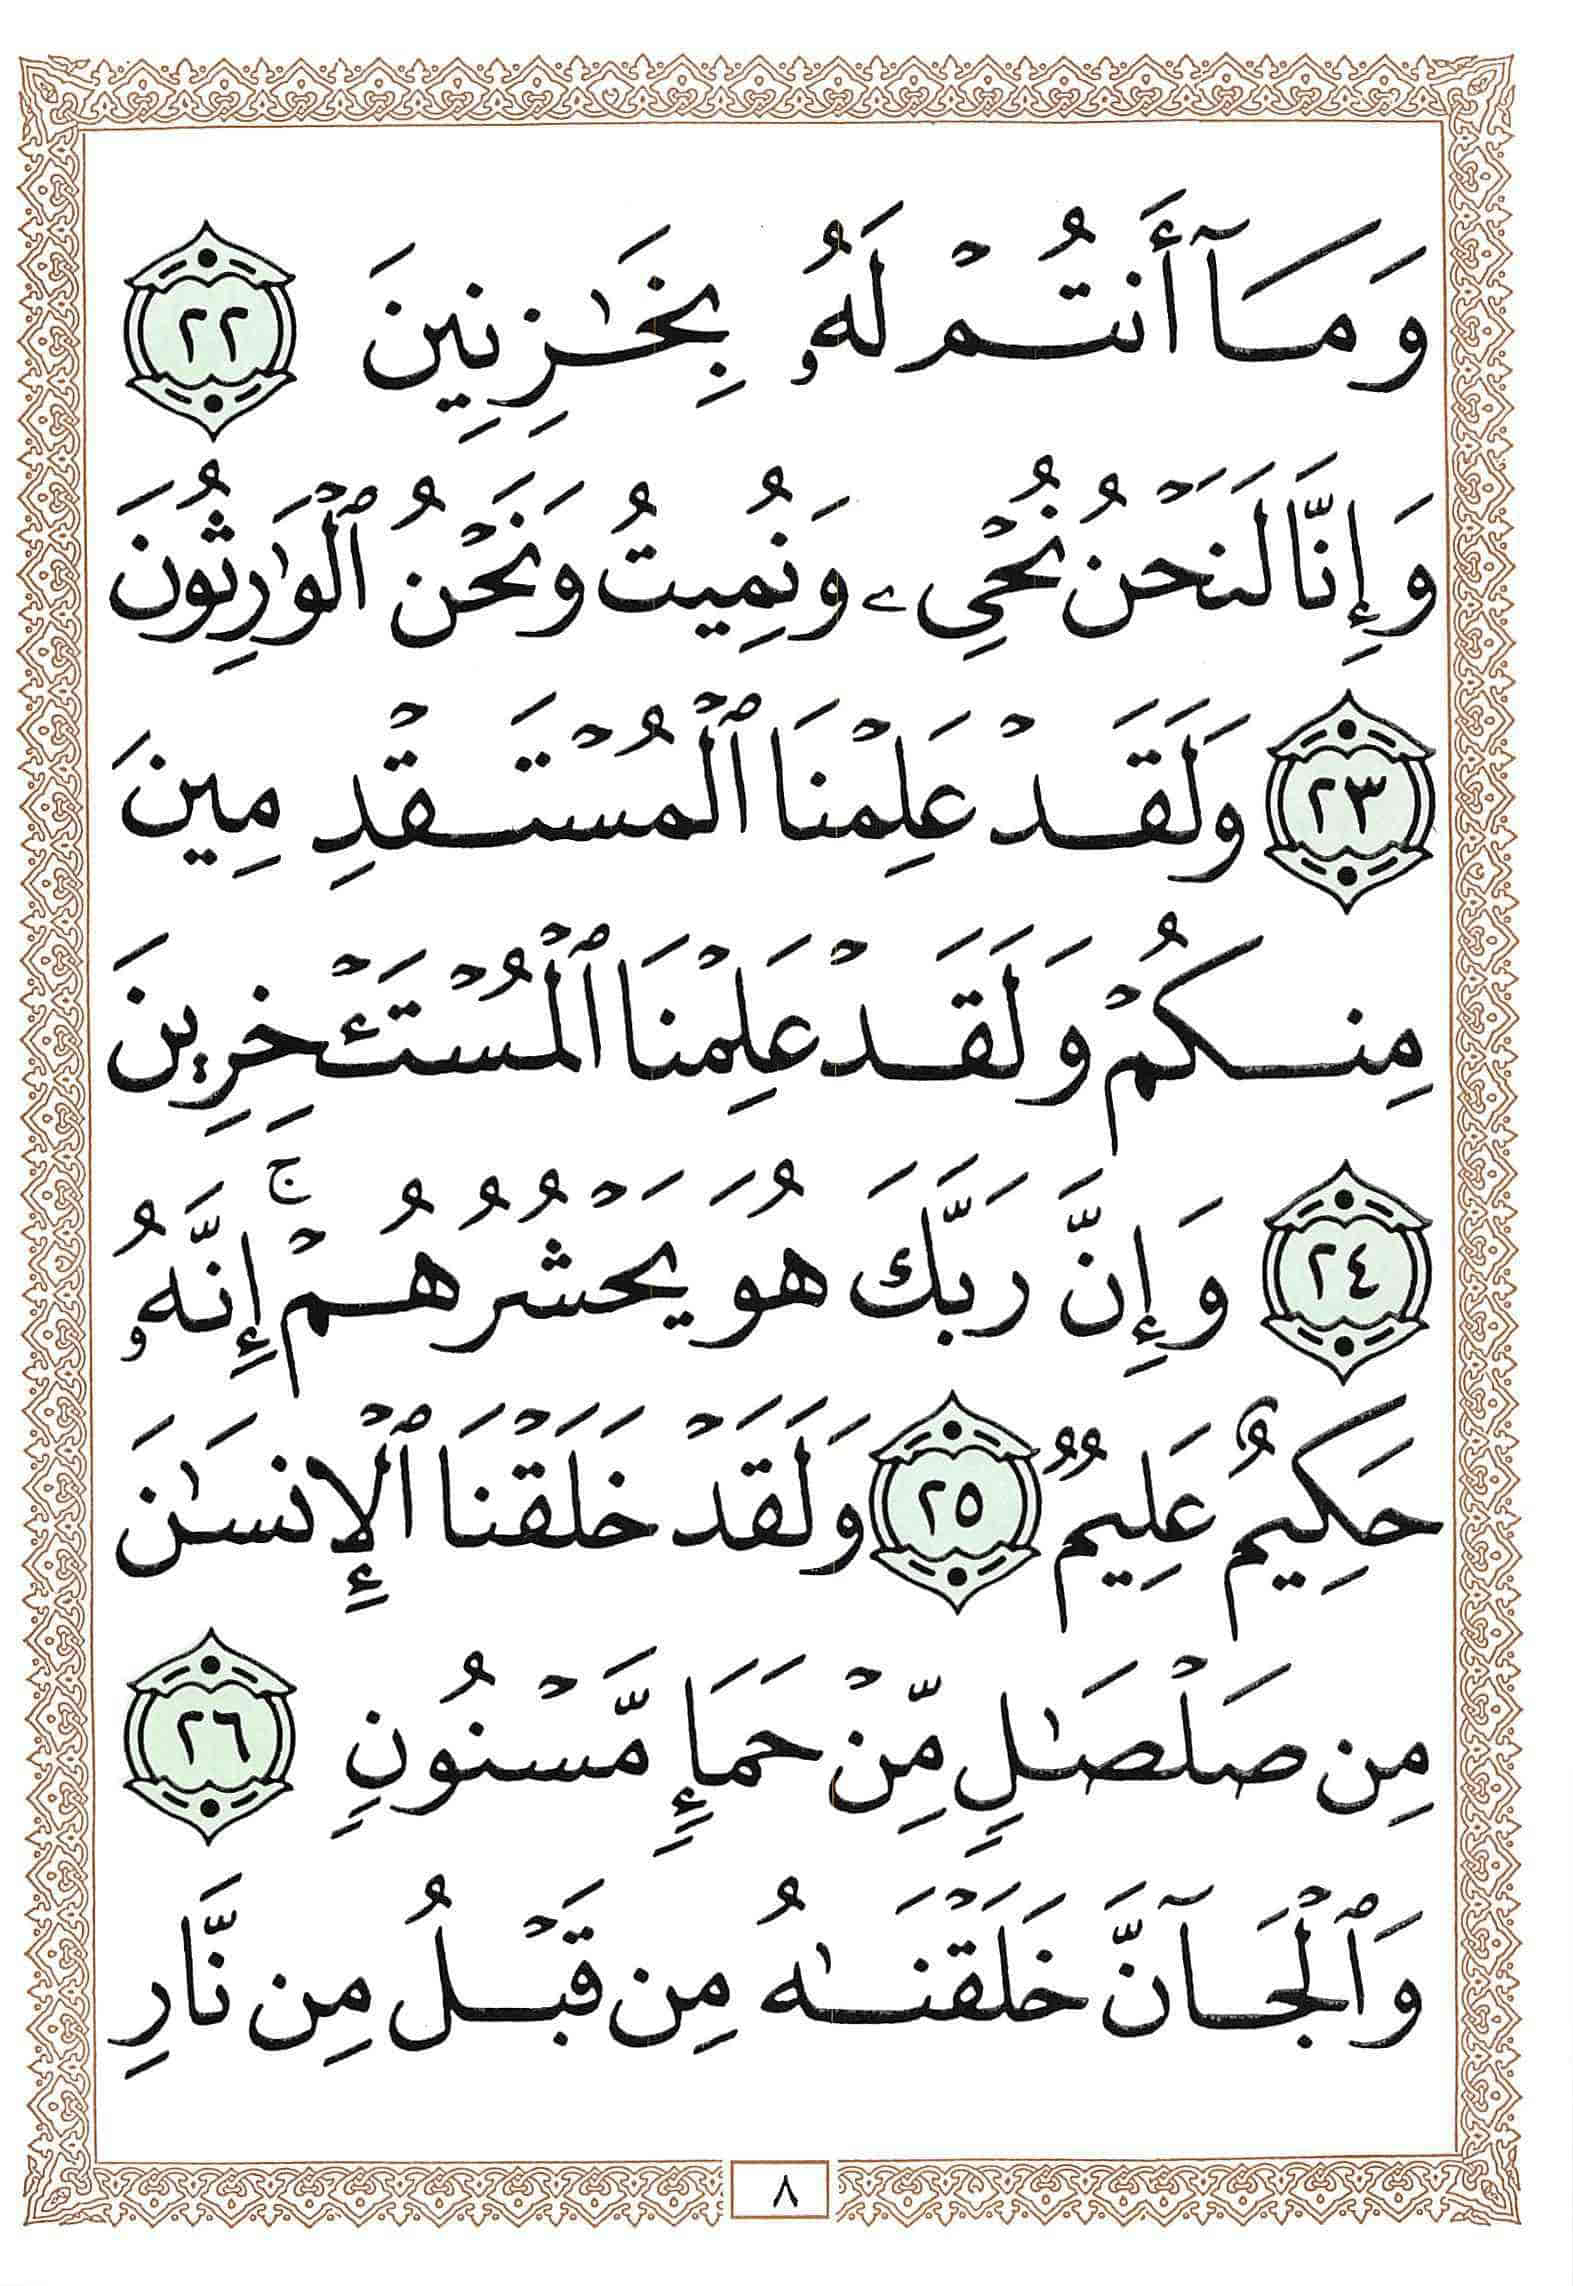 وَمَآ أَنتُمۡ لَهُۥ بِخَـٰزِنِينَ ٢٢
وَإِنَّا لَنَحۡنُ نُحۡيِۦ وَنُمِيتُ وَنَحۡنُ ٱلۡوَٰرِثُونَ
٢٣ وَلَقَدۡ عَلِمۡنَا ٱلۡمُسۡتَقۡدِمِينَ
مِنكُمۡ وَلَقَدۡ عَلِمۡنَا ٱلۡمُسۡتَـٔۡخِرِينَ
٢٤ وَإِنَّ رَبَّكَ هُوَ يَحۡشُرُهُمۡۚ إِنَّهُۥ
حَكِيمٌ عَلِيمٌ ٢٥ وَلَقَدۡ خَلَقۡنَا ٱلۡإِنسَـٰنَ
مِن صَلۡصَـٰلٍ مِّنۡ حَمَإٍ مَّسۡنُونٍ ٢٦
وَٱلۡجَآنَّ خَلَقۡنَـٰهُ مِن قَبۡلُ مِن نَّارِ
٨